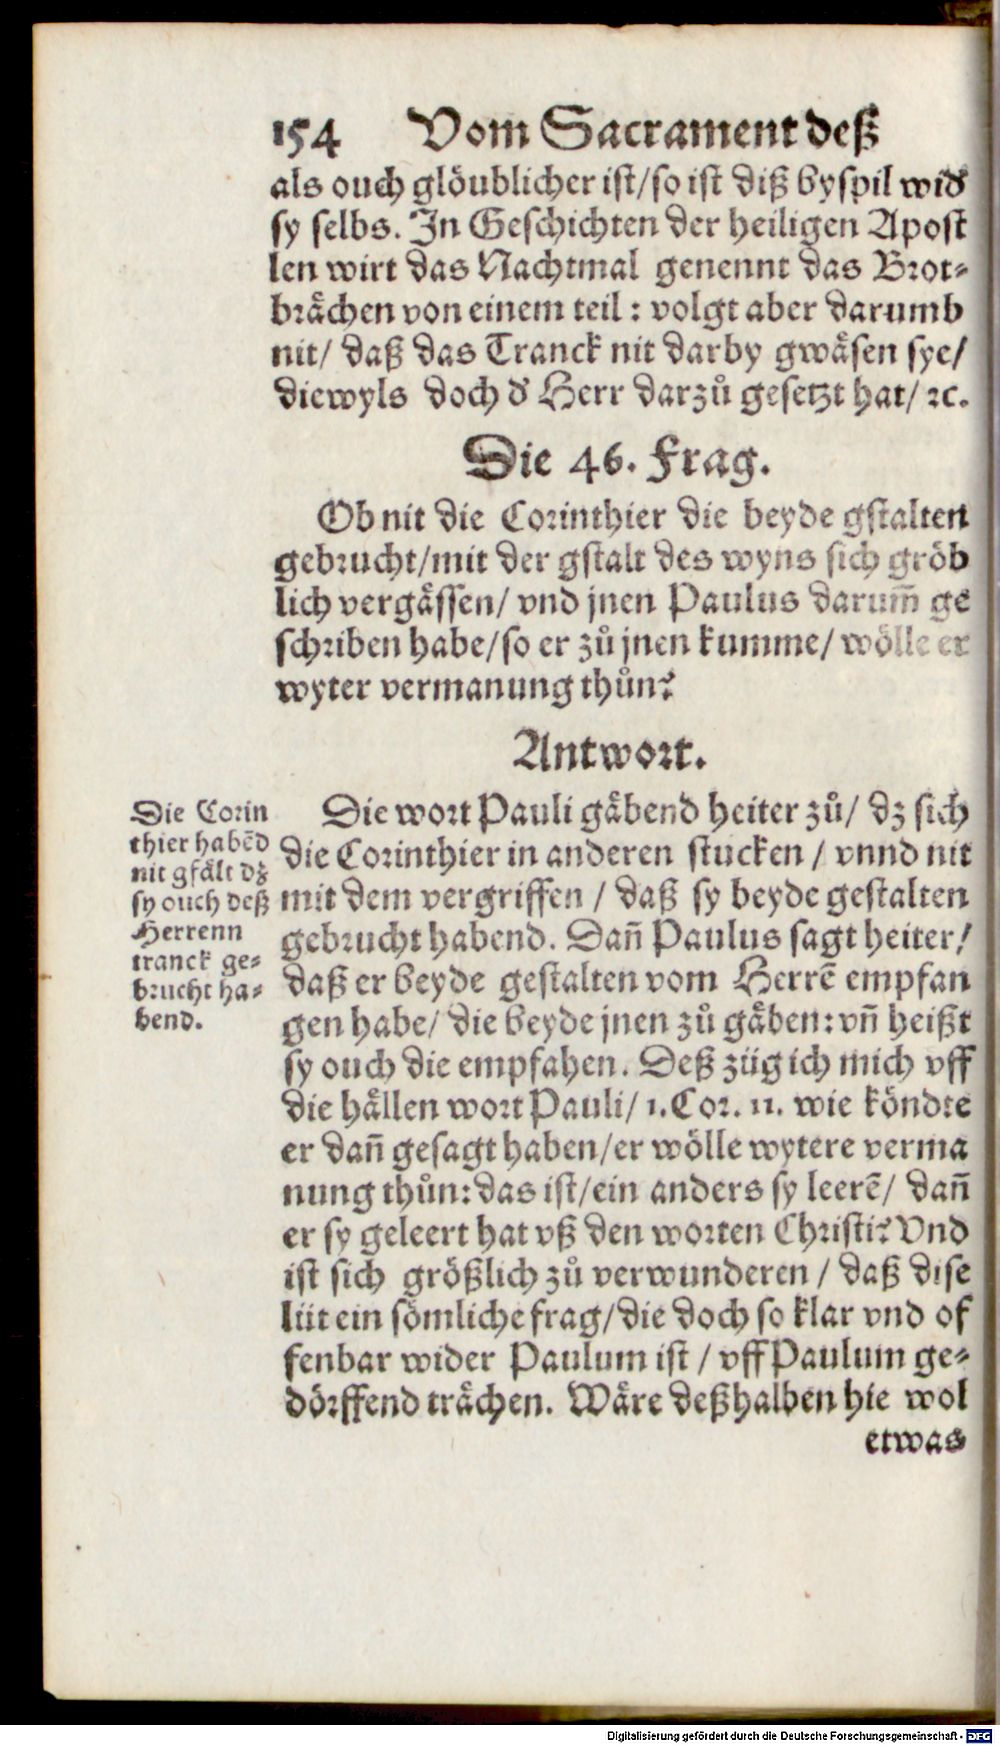 154 Vom Sacrament deß
als ouch glöublicher ist/so ist diß byspil wid'
sy selbs. In Geschichten der heiligen Apost
len wirt das Nachtmal genennt das Brot-
bråchen von einem teil: volgt aber darumb
nit/ daß das Tranck nit darby gwåsen sye/
diewyls doch d' Herr darzů gesetzt hat/ ꝛc.
Die 46. Frag.
Ob nit die Corinthier die beyde gstalten
gebrucht/mit der gstalt des wyns sich gröb
lich vergåssen/ vnd jnen Paulus darum̃ ge
schriben habe/so er zů jnen kumme/ wölle er
wyter vermanung thůn?
Antwort.
Die Corin
thier habẽd
nit gfålt dz
sy ouch deß
Herrenn
tranck ge-
brucht ha-
bend.
Die wort Pauli gåbend heiter zů/ dz sich
die Corinthier in anderen stucken / vnnd nit
mit dem vergriffen / daß sy beyde gestalten
gebrucht habend. Dañ Paulus sagt heiter/
daß er beyde gestalten vom Herrẽ empfan
gen habe/ die beyde jnen zů gåben: vñ heißt
sy ouch die empfahen. Deß züg ich mich vff
die hållen wort Pauli/ 1. Cor. 11. wie köndte
er dañ gesagt haben/er wölle wytere verma
nung thůn: das ist/ein anders sy leerẽ/ dañ
er sy geleert hat vß den worten Christi? Vnd
ist sich größlich zů verwunderen / daß dise
lüt ein sömliche frag/die doch so klar vnd of
fenbar wider Paulum ist / vff Paulum ge-
dörffend tråchen. Wåre deßhalben hie wol
etwas
Digitalisierung gefördert durch die Deutsche Forschungsgemeinschaft - DFG